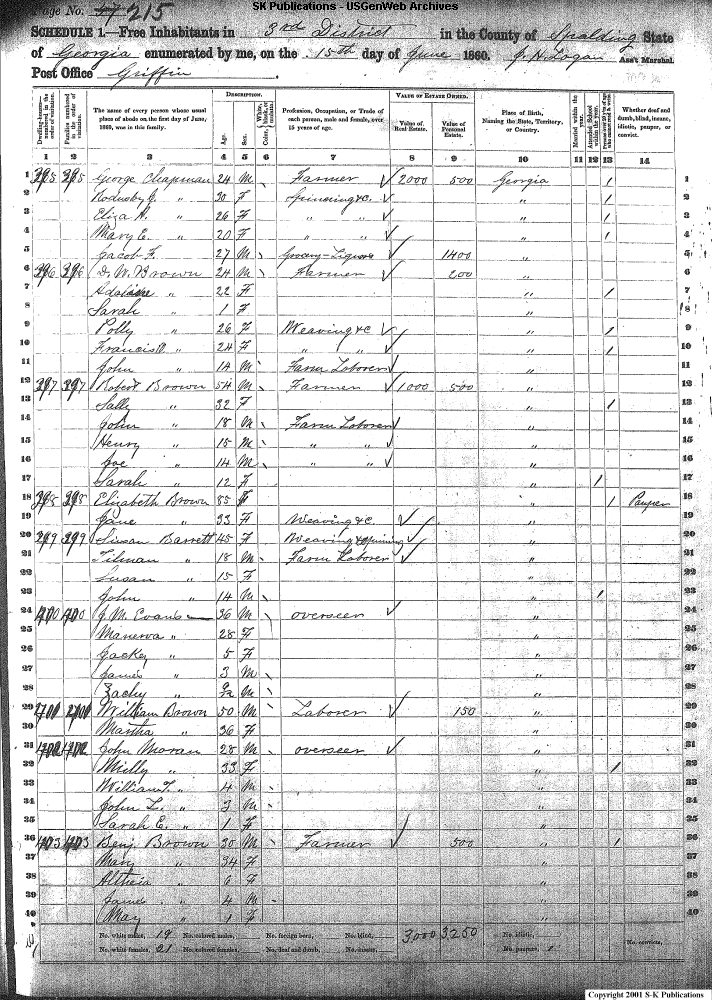 SK Publications - USGenWeb Archives
Page No. 215
SCHEDULE 1.—Free Inhabitants in 3rd District in the County of Spalding State
of Georgia enumerated by me, on the 15th day of June 1860. J. H. Logan Ass't Marshal.
Post Office Griffin
DESCRIPTION. VALUE OF ESTATE OWNED.
Dwelling-houses—numbered in the order of visitation. Families numbered in the order of visitation. The name of every person whose usual place of abode on the first day of June, 1860, was in this family. Age. Sex. Color, White, black, or mulatto. Profession, Occupation, or Trade of each person, male and female, over 15 years of age. Value of Real Estate. Value of Personal Estate. Place of Birth, Naming the State, Territory, or Country. Married within the year. Attended School within the year. Whether deaf and dumb, blind, insane, idiotic, pauper, or convict.
1 2 3 4 5 6 7 8 9 10 11 12 13 14
1 395 395 George Chapman 24 M Farmer 2000 500 Georgia / 1
2 " 30 F Spinning &c. " / 2
3 Eliza A. " 26 F " " " / 3
4 Mary E. " 20 F " " " / 4
5 Jacob F. 27 M Grocery - Liquors 1400 " 5
6 396 396 D. W. Brown 24 M Farmer 200 " 6
7 Adaline " 22 F " / 7
8 Sarah " 1 F " 8
9 Polly " 26 F Weaving &c " / 9
10 Francis " 24 F " " " / 10
11 John " 14 M Farm Laborer " 11
12 397 397 Robert Brown 54 M Farmer 1000 500 " 12
13 Sally " 32 F " / 13
14 John " 18 M Farm Laborer " 14
15 Henry " 15 M " " " 15
16 Joe " 14 M " " " 16
17 Sarah " 12 F " / 17
18 398 398 Elizabeth Brown 85 F " / Pauper 18
19 Jane " 33 F Weaving &c. " 19
20 399 399 Susan Barrett 45 F Weaving & Spinning " 20
21 Tilman " 18 M Farm Laborer " 21
22 Susan " 15 F " 22
23 John " 14 M " / 23
24 400 400 J. M. Evans 36 M overseer " 24
25 Manerva " 28 F " 25
26 Jackey " 5 F " 26
27 James " 3 M " 27
28 Zachy " 9/12 M " 28
29 William Brown 50 M Laborer 150 " 29
30 Martha " 36 F " 30
31 402 402 John Moran 28 M overseer " 31
32 Milly " 33 F " / 32
33 William T. " 4 M " 33
34 John L. " 3 M " 34
35 Sarah E. " 1 F " 35
36 403 403 Benj. Brown 30 M Farmer 500 " / 36
37 Mary " 34 F " 37
38 " 6 F " 38
39 " 4 M " 39
40 May " 1 F " 40
No. white males, 19 No. colored males, No. foreign born, No. blind, 3,000 3250 No. idiotic,
No. white females, 21 No. colored females, No. deaf and dumb, No. insane, No. paupers, 1 No. convicts,
Copyright 2001 S-K Publications